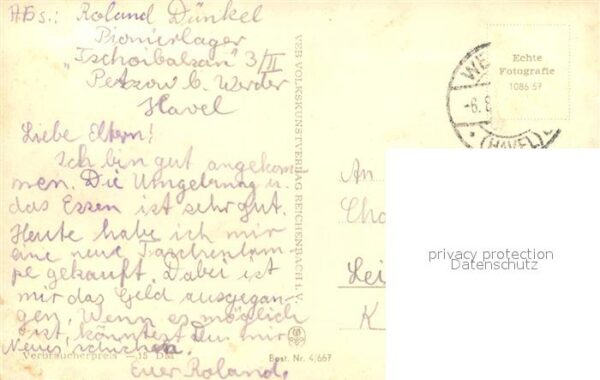 Abs.: Roland Dünkel
Pionierlager
"Tschoibalsan" 3/II
Petzow b. Werder
Havel
Liebe Eltern!
Ich bin gut angekom-
men. Die Umgebung u.
das Essen ist sehr gut.
Heute habe ich mir
eine neue Taschenlam-
pe gekauft. Dabei ist
mir das Geld ausgegan-
gen. Wenn es möglich
ist, könntest Du mir
Neues schicken.
Euer Roland.
Verbraucherpreis —.15 DM
Best. Nr. 4/667
VEB VOLKSKUNSTVERLAG REICHENBACH I. V.
Echte
Fotografie
1086 57
WE
-6.8
(HAVEL)
An
Cha
Lei
K
privacy protection
Datenschutz